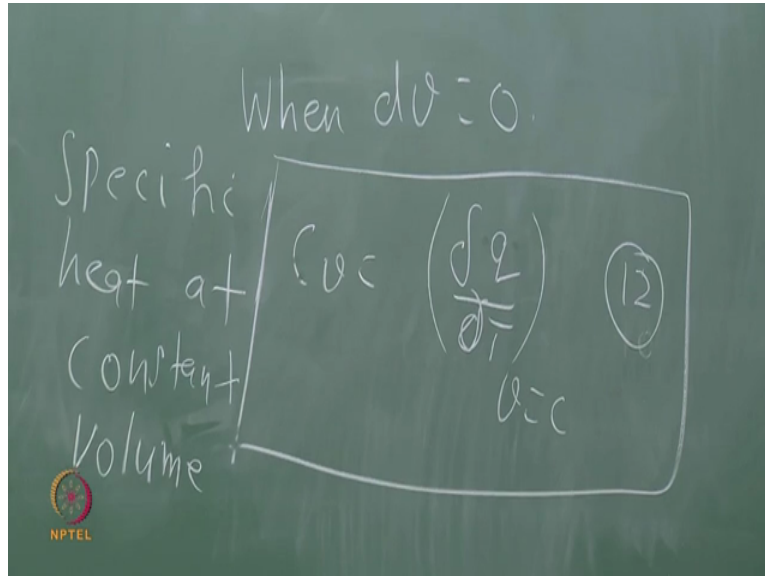 When dv = 0.
Specific
heat at
constant
volume
Cv = (δq/dT) v=c (12)
NPTEL